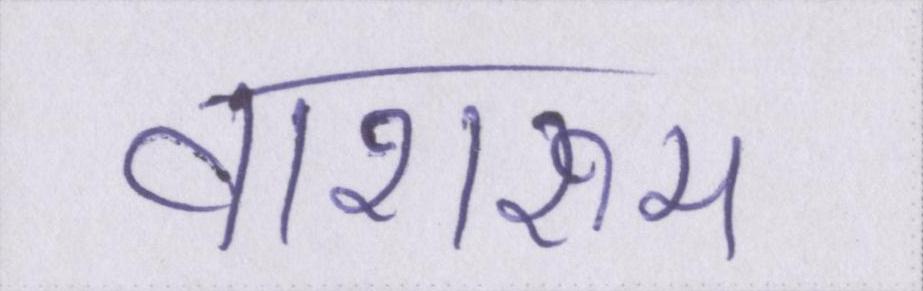 वाशरूम